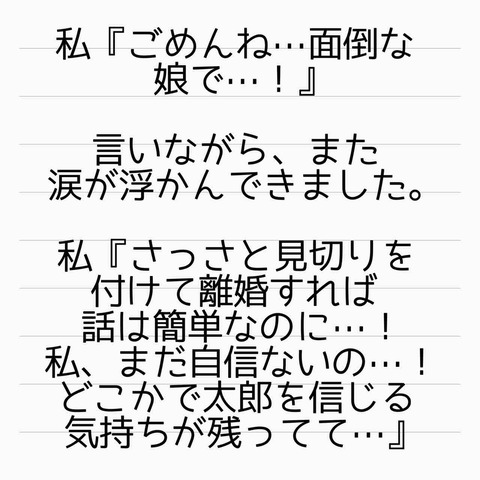 私『ごめんね…面倒な
娘で…！』
言いながら、また
涙が浮かんできました。
私『さっさと見切りを
付けて離婚すれば
話は簡単なのに…！
私、まだ自信ないの…！
どこかで太郎を信じる
気持ちが残ってて…』